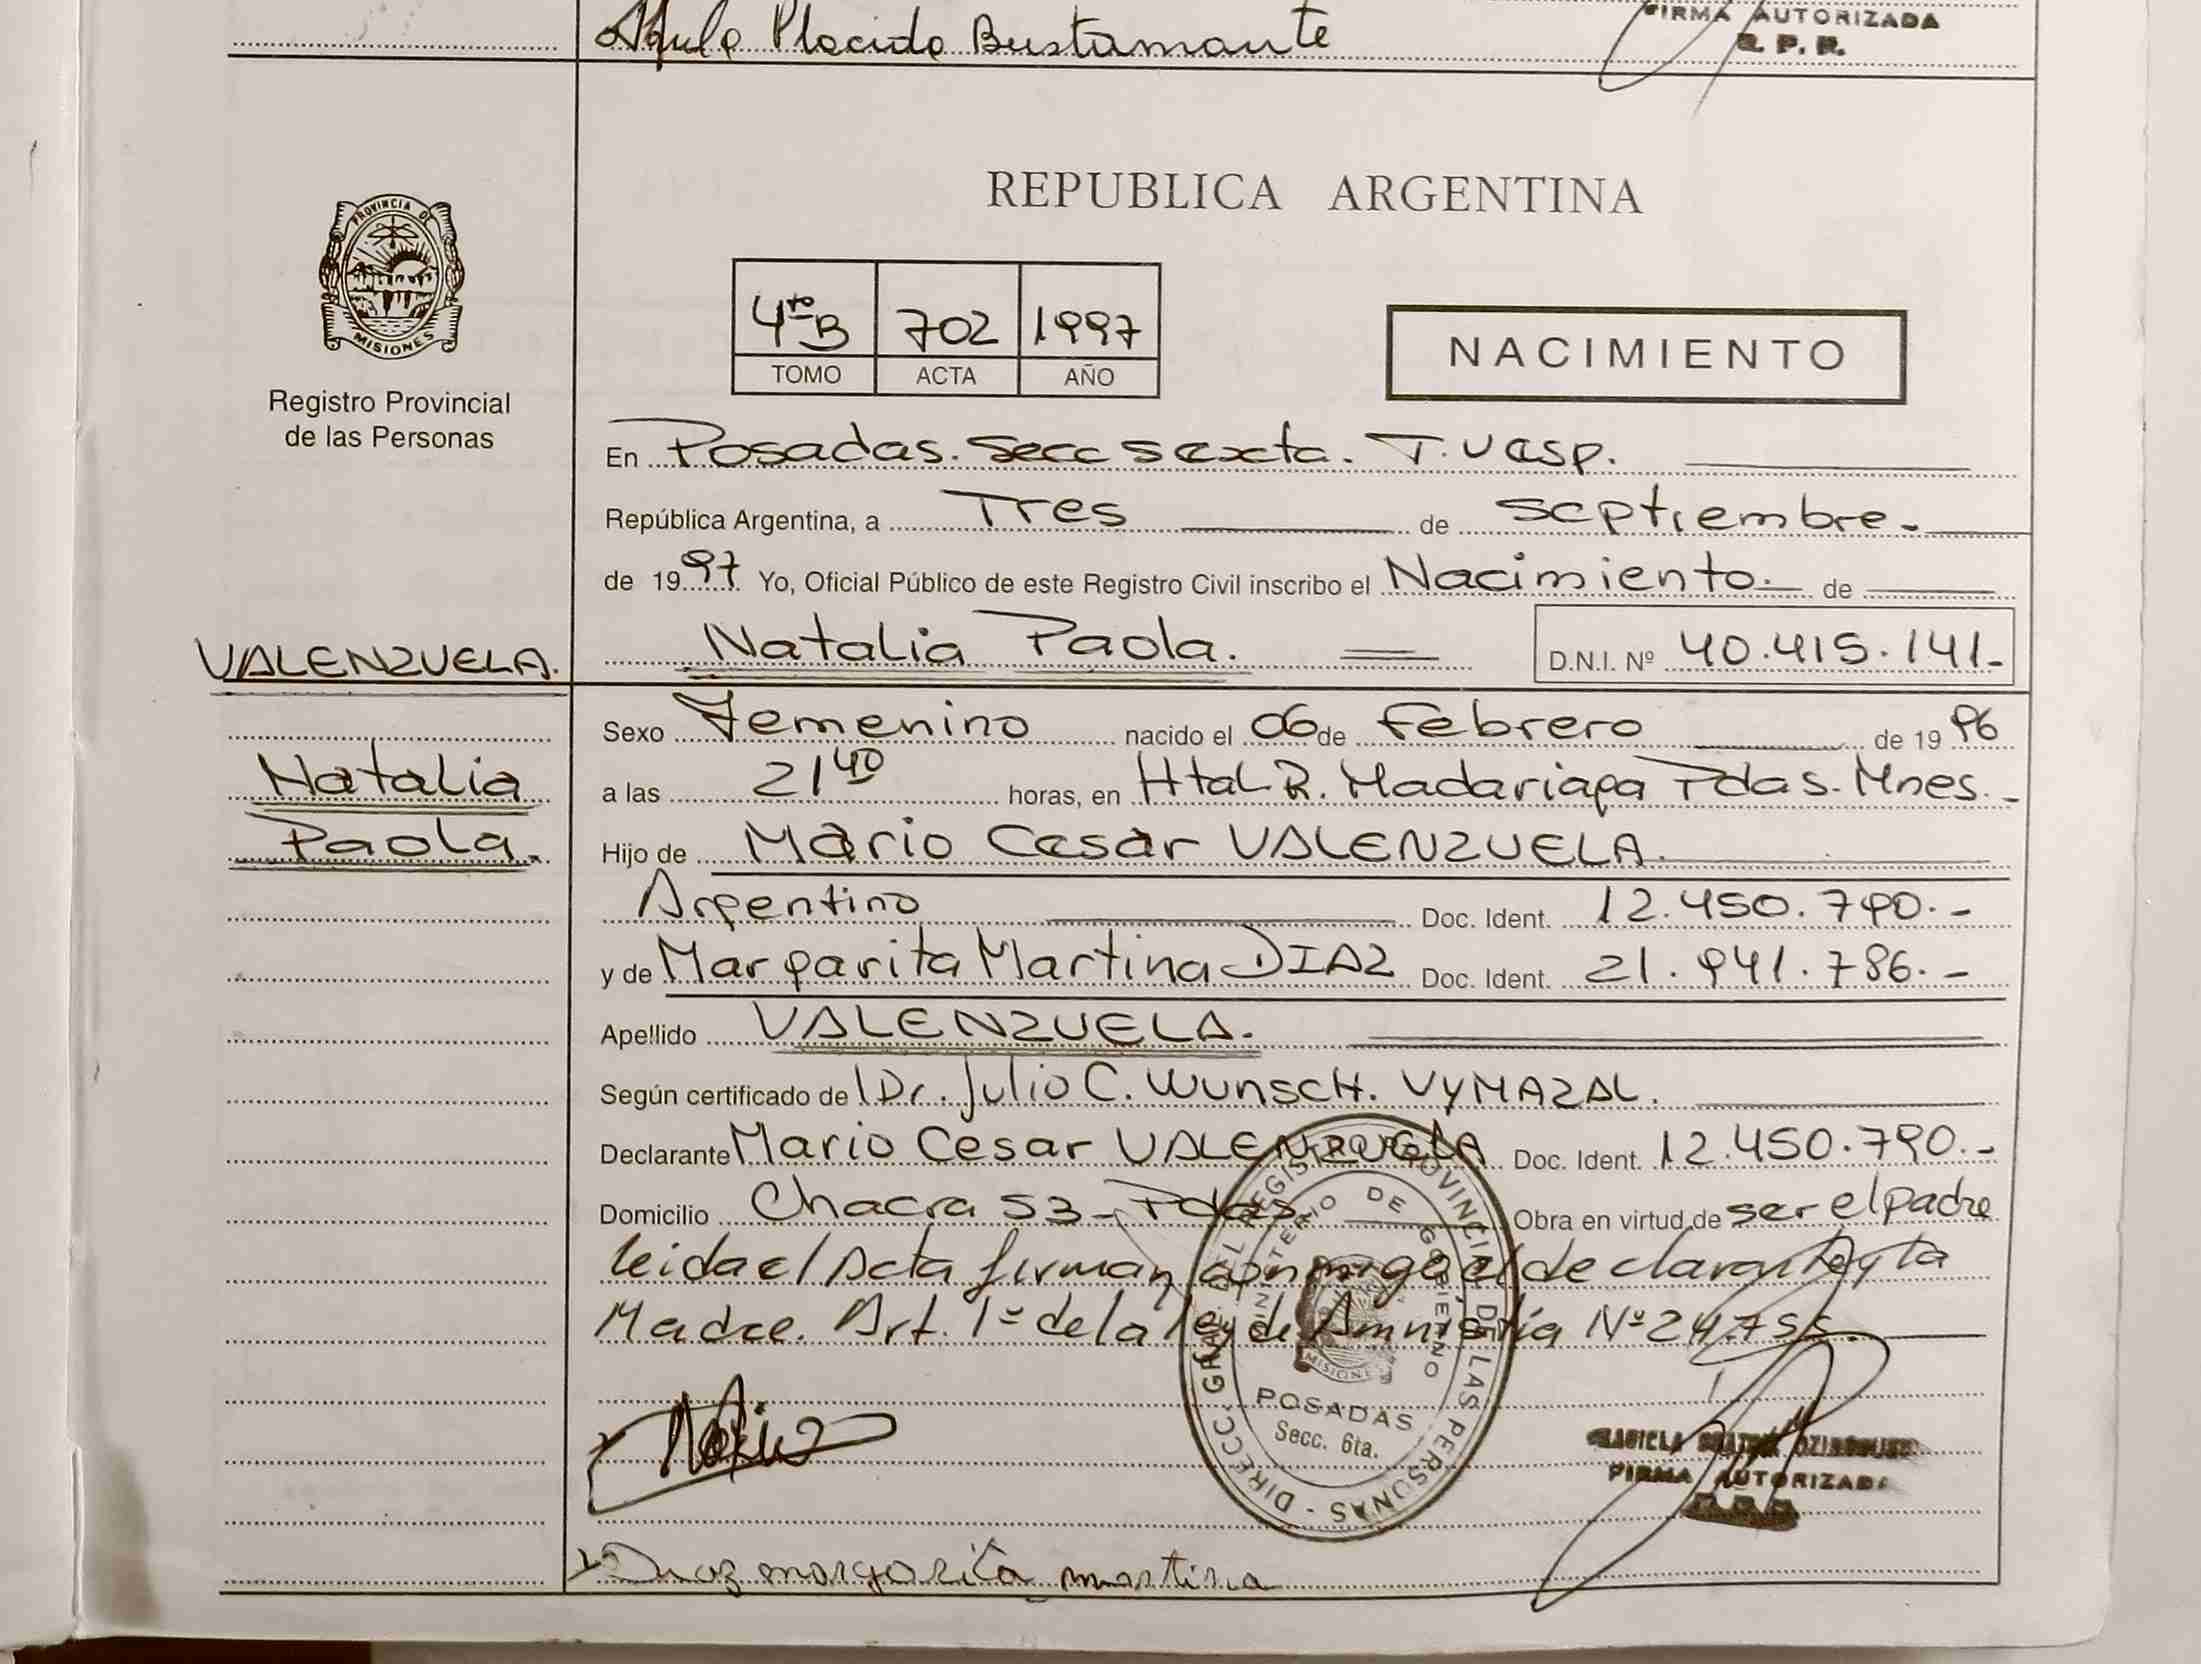 Placido Bustamante
FIRMA AUTORIZADA
R. P. P.
PROVINCIA DE
MISIONES
Registro Provincial
de las Personas
REPUBLICA ARGENTINA
4to B 702 1997
TOMO ACTA AÑO
NACIMIENTO
En Posadas. Secc Sexta. T. Uesp.
República Argentina, a Tres de Septiembre.-
de 1997 Yo, Oficial Público de este Registro Civil inscribo el Nacimiento.- de
VALENZUELA. Natalia Paola. D.N.I. Nº 40.415.141.-
Sexo Femenino nacido el 06 de Febrero de 1996
Natalia a las 21 40 horas, en Htal R. Madariaga Pdas. Mnes.-
Paola. Hijo de Mario Cesar VALENZUELA.
Argentino Doc. Ident. 12.450.790.-
y de Margarita Martina DIAZ Doc. Ident. 21.941.786.-
Apellido VALENZUELA.
Según certificado de Dr. Julio C. Wunsch. VYMAZAL.
Declarante Mario Cesar VALENZUELA Doc. Ident. 12.450.790.-
Domicilio Chacra 53 - Pdas Obra en virtud de ser el padre
leida el Acta firman conmigo, el declarante y la
Madre. Art. 1º de la ley de Amnistía Nº 24.755.
DIRECC. GRAL. DEL REGISTRO PROVINCIAL DE LAS PERSONAS
MINISTERIO DE GOBIERNO
MISIONES
POSADAS
Secc. 6ta.
Mario
FIRMA AUTORIZADA
Diaz margarita martina